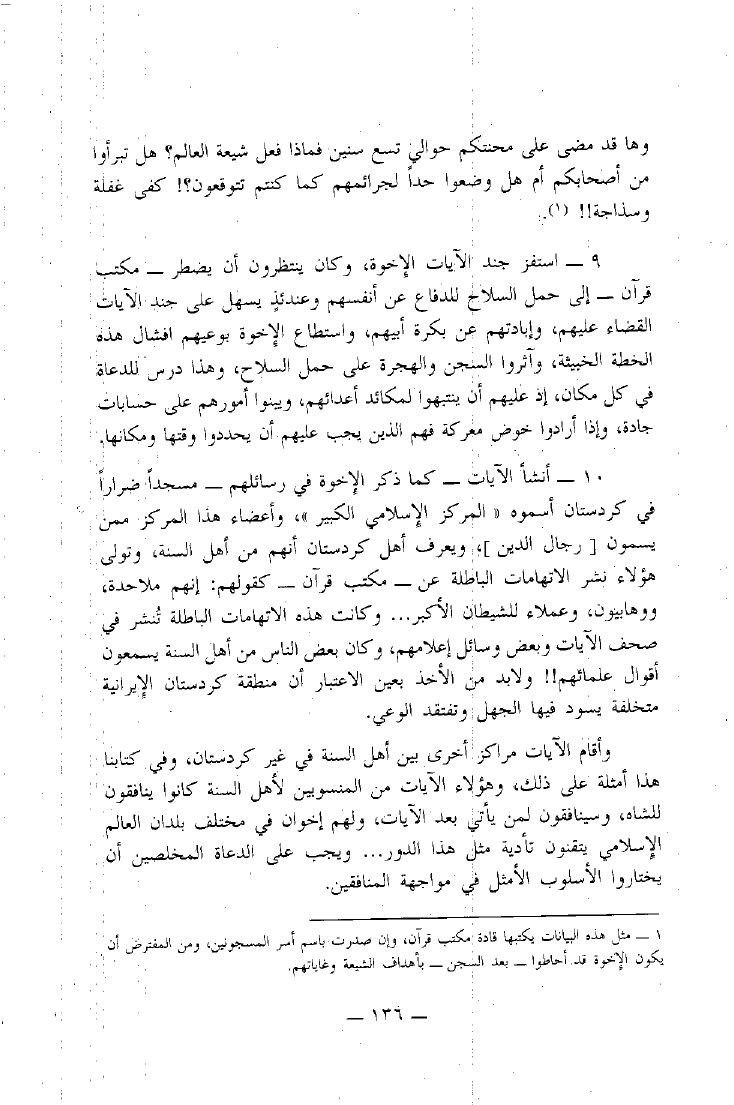 وها قد مضى على محنتكم حوالي تسع سنين فماذا فعل شيعة العالم؟ هل تبرأوا
من أصحابكم أم هل وضعوا حداً لجرائمهم كما كنتم تتوقعون؟! كفى غفلة
وسذاجة!! (١).
٩ ــ استفز جند الآيات الإخوة، وكان ينتظرون أن يضطر ــ مكتب
قرآن ــ إلى حمل السلاح للدفاع عن أنفسهم وعندئذٍ يسهل على جند الآيات
القضاء عليهم، وإبادتهم عن بكرة أبيهم، واستطاع الإخوة بوعيهم افشال هذه
الخطة الخبيثة، وآثروا السجن والهجرة على حمل السلاح، وهذا درس للدعاة
في كل مكان، إذ عليهم أن ينتبهوا لمكائد أعدائهم، ويبنوا أمورهم على حسابات
جادة، وإذا أرادوا خوض معركة فهم الذين يجب عليهم أن يحددوا وقتها ومكانها.
١٠ ــ أنشأ الآيات ــ كما ذكر الإخوة في رسائلهم ــ مسجداً ضراراً
في كردستان أسموه « المركز الإسلامي الكبير »، وأعضاء هذا المركز ممن
يسمون [ رجال الدين ]، ويعرف أهل كردستان أنهم من أهل السنة، وتولى
هؤلاء نشر الاتهامات الباطلة عن ــ مكتب قرآن ــ كقولهم: إنهم ملاحدة،
ووهابيون، وعملاء للشيطان الأكبر... وكانت هذه الاتهامات الباطلة تُنشر في
صحف الآيات وبعض وسائل إعلامهم، وكان بعض الناس من أهل السنة يسمعون
أقوال علمائهم!! ولابد من الأخذ بعين الاعتبار أن منطقة كردستان الإيرانية
متخلفة يسود فيها الجهل وتفتقد الوعي.
وأقام الآيات مراكز أخرى بين أهل السنة في غير كردستان، وفي كتابنا
هذا أمثلة على ذلك، وهؤلاء الآيات من المنسوبين لأهل السنة كانوا ينافقون
للشاه، وسينافقون لمن يأتي بعد الآيات، ولهم إخوان في مختلف بلدان العالم
الإسلامي يتقنون تأدية مثل هذا الدور... ويجب على الدعاة المخلصين أن
يختاروا الأسلوب الأمثل في مواجهة المنافقين.
١ ــ مثل هذه البيانات يكتبها قادة مكتب قرآن، وإن صدرت باسم أسر المسجونين، ومن المفترض أن
يكون الإخوة قد أحاطوا ــ بعد السجن ــ بأهداف الشيعة وغاياتهم.
ــ ١٣٦ ــ